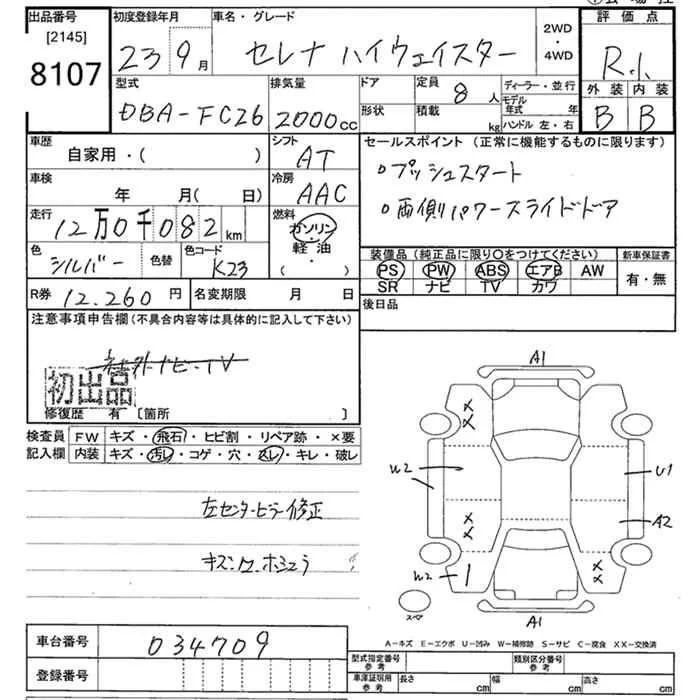 出品番号
[2145]
8107
初度登録年月
23 9月
車名・グレード
セレナ ハイウェイスター
2WD
・
4WD
評価点
R.1
外装 内装
B B
型式
DBA-FC26
排気量
2000cc
ドア
形状
定員
8人
積載
kg
ディーラー・並行
モデル年式 年
ハンドル 左・右
車歴
自家用・( )
シフト
AT
車検
年 月( 日)
冷房
AAC
走行
12万0千082km
燃料
ガソリン
軽油
( ・ )
色
シルバー
色替
色コード
K23
R券 12.260円
名変期限 月 日
セールスポイント(正常に機能するものに限ります)
○プッシュスタート
○両側パワースライドドア
装備品(純正品に限り○をつけてください)
PS PW ABS エアB AW
SR ナビ TV カワ
新車保証書
有・無
後日品
注意事項申告欄(不具合内容等は具体的に記入して下さい)
社外ナビ・TV
初出品
修復歴 有 [箇所 ]
検査員記入欄
FW キズ・飛石・ヒビ割・リペア跡・×要
内装 キズ・汚レ・コゲ・穴・スレ・キレ・破レ
左センターピラー修正
車台番号 034709
登録番号
A1
W2
U1
A2
W2
A1
スペア
A-キズ E-エクボ U-凹み W-補修跡 S-サビ C-腐食 XX-交換済
型式指定番号 参考
類別区分番号 参考
車庫証明用 参考
長さ cm 幅 cm 高さ cm